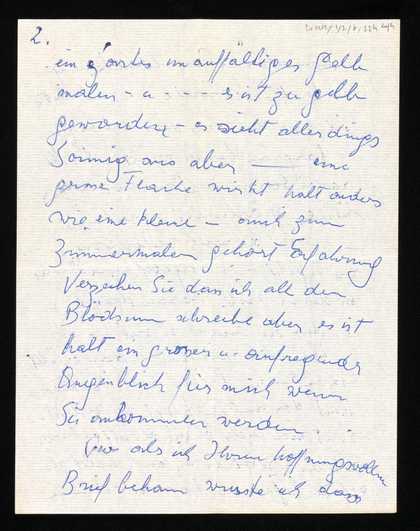 2.
ein zartes unauffälliges Gelb
malen - u - - - - es ist zu gelb
geworden - es sieht allerdings
sonnig aus aber — eine
grosse Fläche wirkt halt anders
wie eine kleine - auch zum
Zimmermalen gehört Erfahrung
Verzeihen Sie dass ich all den
Blödsinn schreibe aber es ist
halt ein grosser u. aufregender
Augenblick für mich wenn
Sie ankommen werden.
als ich Ihren hoffnungsvollen
Brief bekam wusste ich dass